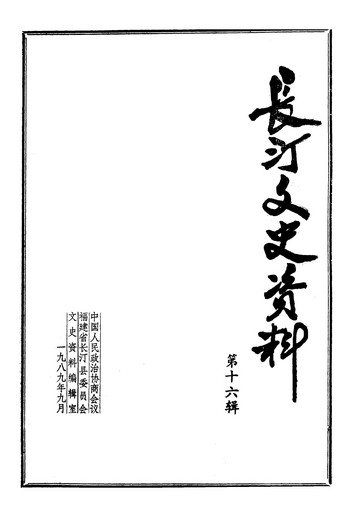 長汀文史资料
第十六辑
中国人民政治协商会议
福建省长汀县委员会
文史资料编辑室
一九八九年九月